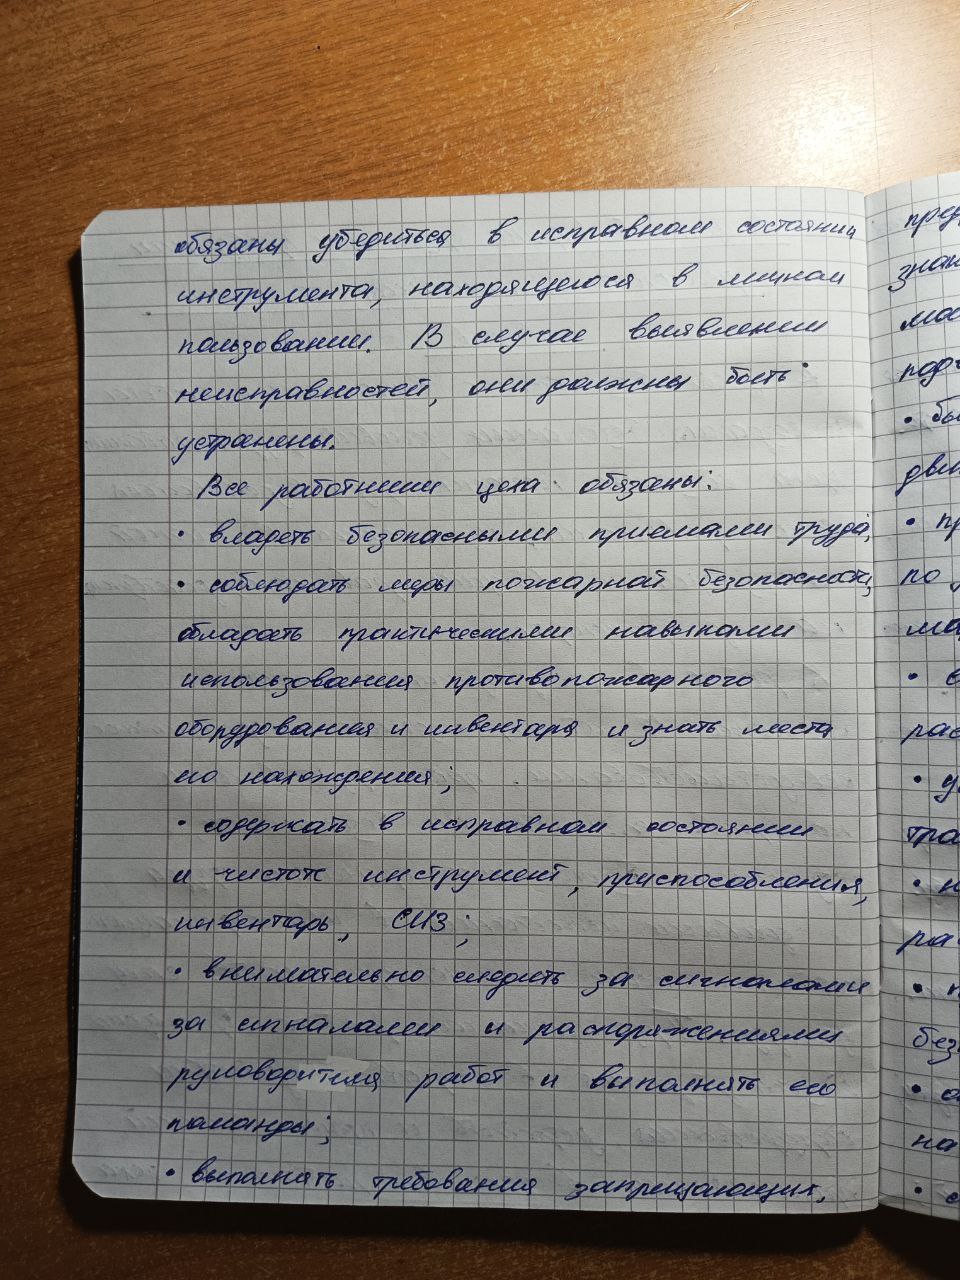 обязаны убедиться в исправном состоянии
инструмента, находящегося в личном
пользовании. В случае выявления
неисправностей, они должны быть
устранены.
Все работники цеха обязаны:
• владеть безопасными приемами труда;
• соблюдать меры пожарной безопасности,
обладать практическими навыками
использования противопожарного
оборудования и инвентаря и знать места
его нахождения;
• содержать в исправном состоянии
и чистоте инструмент, приспособления,
инвентарь, СИЗ;
• внимательно следить за сигналами
за сигналами и распоряжениями
руководителя работ и выполнять его
команды;
• выполнять требования запрещающих,